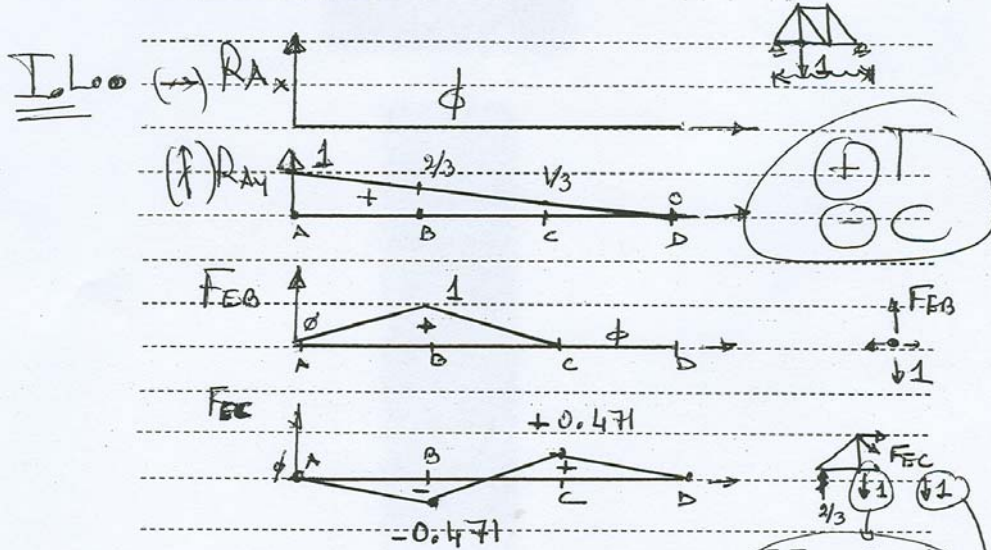 I.L.
(→) RAx ϕ
1
(↑) RAy 1 + 2/3 1/3 0
A B C D
⊕ T
⊖ C
FEB ϕ 1 + ϕ
A B C D
FEB
↓1
FEC +0.471
ϕ A B - + C D
-0.471
FEC
2/3 ↓1 ↓1